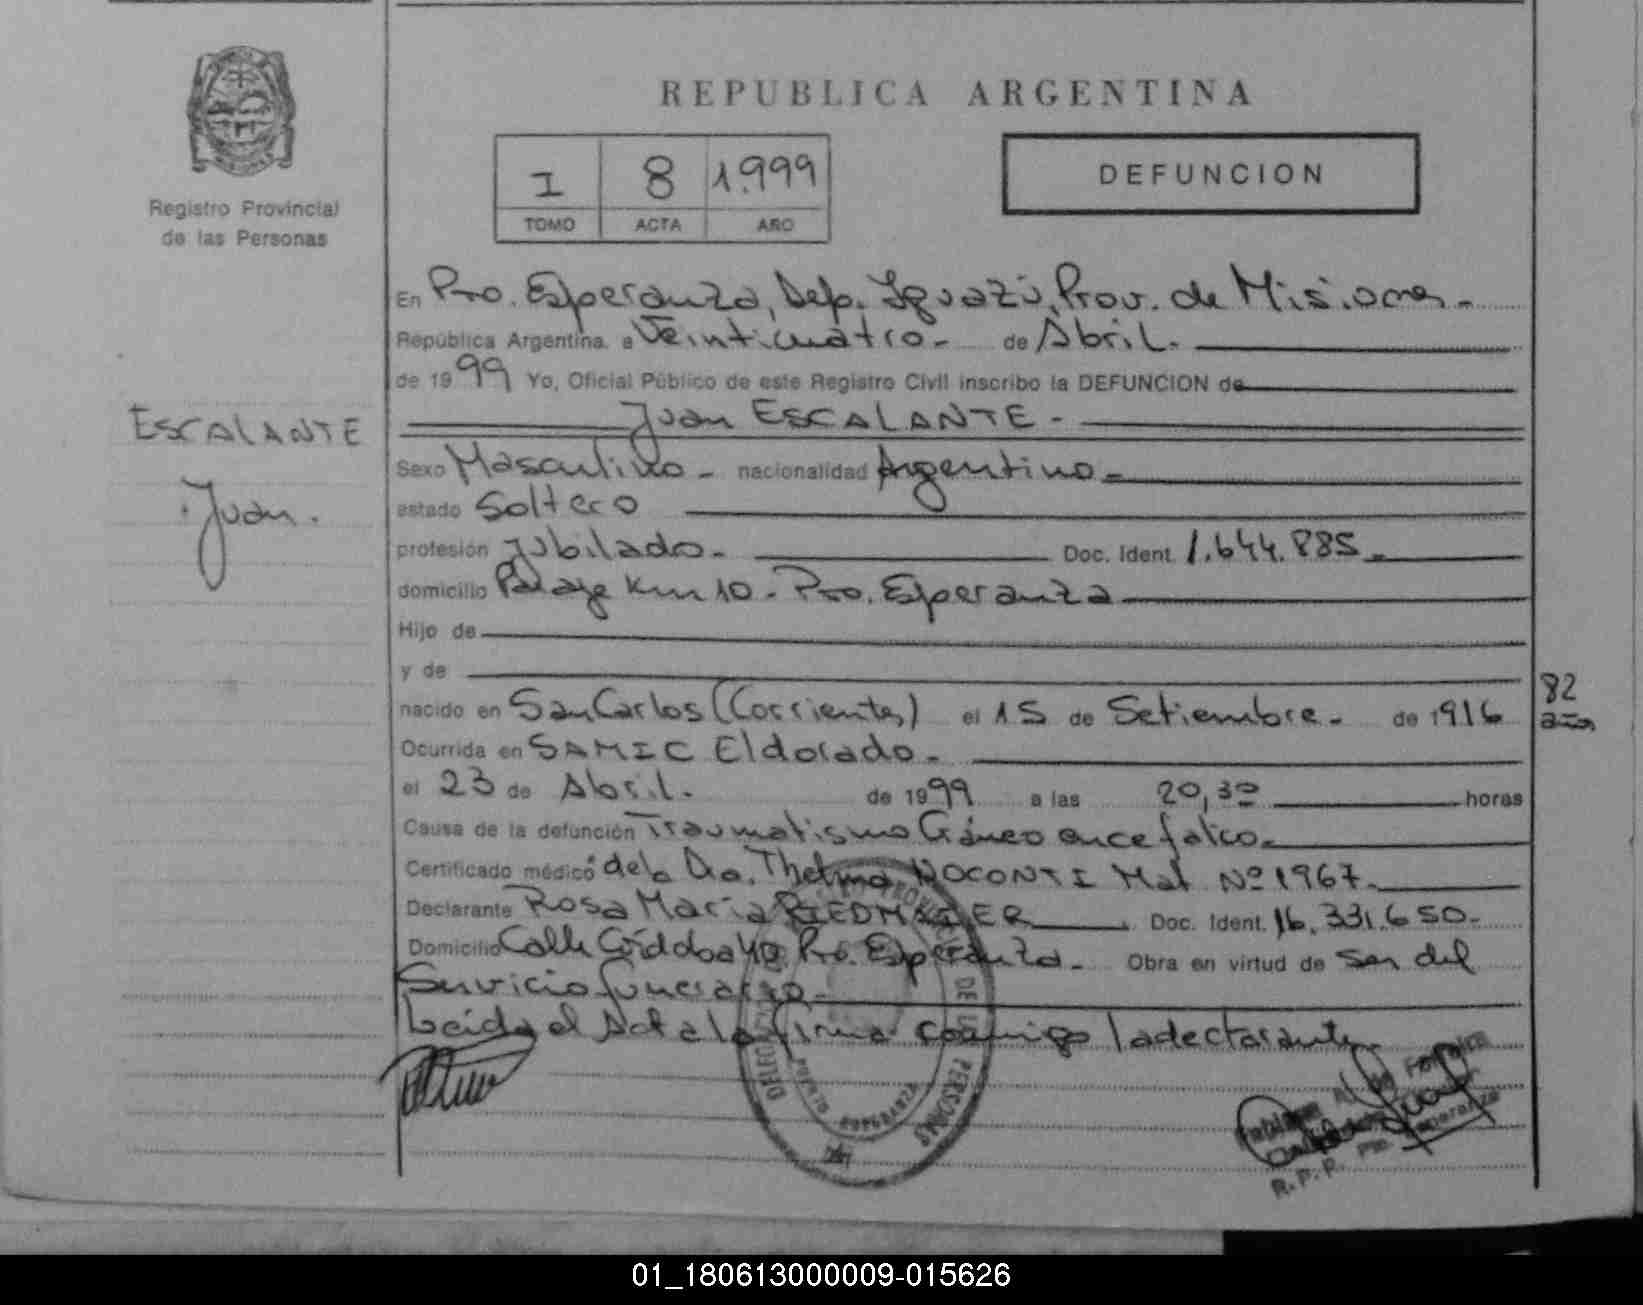 REPUBLICA ARGENTINA
Registro Provincial
de las Personas
I 8 1.999
TOMO ACTA AÑO
DEFUNCION
En Pto. Esperanza, Dep. Iguazú, Prov. de Misiones.-
República Argentina, a Veinticuatro.- de Abril.-
de 1999 Yo, Oficial Público de este Registro Civil inscribo la DEFUNCION de
Juan ESCALANTE.-
ESCALANTE
Juan.
Sexo Masculino.- nacionalidad Argentino.-
estado Soltero
profesión Jubilado.- Doc. Ident. 1.644.885.-
domicilio Paraje Km 10.- Pto. Esperanza
Hijo de
y de
nacido en San Carlos (Corrientes) el 15 de Setiembre.- de 1916
82
años
Ocurrida en SAMIC Eldorado.-
el 23 de Abril. de 1999 a las 20,30 horas
Causa de la defunción Traumatismo Cráneo encefalco.-
Certificado médico de la Dra. Thelma NOCONTI Mat Nº 1967.-
Declarante Rosa Maria RIEDMAIER Doc. Ident. 16.331.650.-
Domicilio Calle Córdoba 40 Pto. Esperanza.- Obra en virtud de Ser del
Servicio funerario.-
Leida el Acta la firma conmigo la declarante.-
DE LAS PERSONAS
ESPERANZA
R.P.P. Pto. Esperanza
01_180613000009-015626